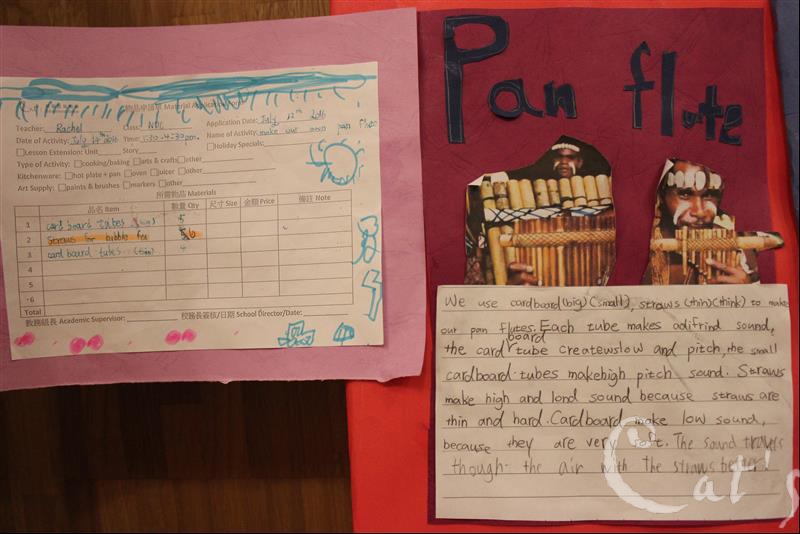 物品申請單 Material Application Form
Teacher: Rachel Class: NDC Application Date: July 12th 2016
Date of Activity: July 14th 2016 Time: 1:30-4:30pm. Name of Activity: make our own pan flute
Lesson Extension: Unit Story Holiday Specials:
Type of Activity: cooking/baking arts & crafts other
Kitchenware: hot plate + pan oven juicer other
Art Supply: paints & brushes markers other
所需物品 Materials
品名 Item 數量 Qty 尺寸 Size 金額 Price 備註 Note
1 card board tubes 5
2 Straws for bubble tea 6
3 card board tubes (thin) 4
4
5
6
Total
教務組長 Academic Supervisor: 校務長簽核/日期 School Director/Date:
Pan flute
We use cardboard (big) (small), straws (thin) (think) to make
our pan flutes. Each tube makes adifrind sound,
the card board tube createwslow and pitch, the small
cardboard tubes makehigh pitch sound. Straws
make high and lond sound because straws are
thin and hard. Cardboard make low sound,
because they are very soft. The sound travels
though the air with the straws better.
Cat's